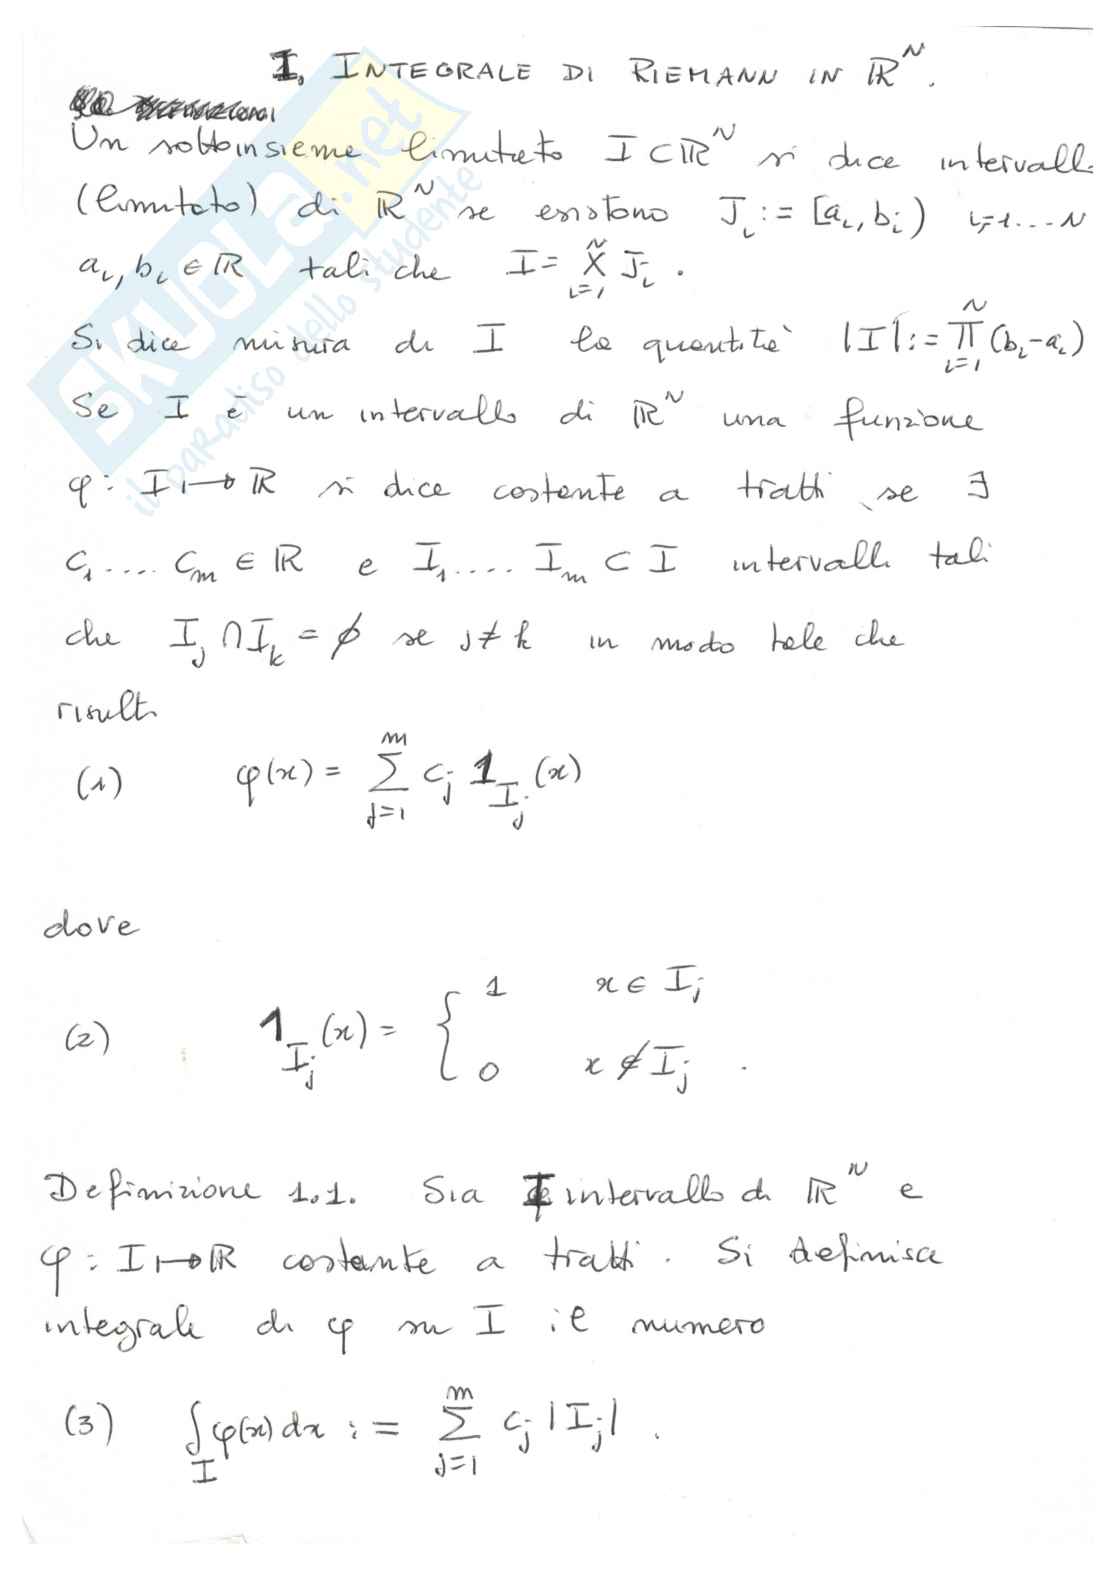 I. INTEGRALE DI RIEMANN IN ℝ^N.
Un sottoinsieme limitato I ⊂ ℝ^N si dice intervall
(limitato) di ℝ^N se esistono J_i := [a_i, b_i) i=1...N
a_i, b_i ∈ ℝ tali che I = X_{i=1}^N J_i .
Si dice misura di I la quantità |I| := ∏_{i=1}^N (b_i - a_i)
Se I è un intervallo di ℝ^N una funzione
φ : I ↦ ℝ si dice costante a tratti se ∃
c_1 .... c_m ∈ ℝ e I_1 .... I_m ⊂ I intervalli tali
che I_j ∩ I_k = ∅ se j ≠ k in modo tale che
risulti
(1) φ(x) = ∑_{j=1}^m c_j 1_{I_j}(x)
dove
(2) 1_{I_j}(x) = { 1 x ∈ I_j
0 x ∉ I_j .
Definizione 1.1. Sia I intervallo di ℝ^N e
φ : I ↦ ℝ costante a tratti. Si definisce
integrale di φ su I il numero
(3) ∫_I φ(x) dx := ∑_{j=1}^m c_j |I_j| .
SKUOLA.net
il paradiso dello studente